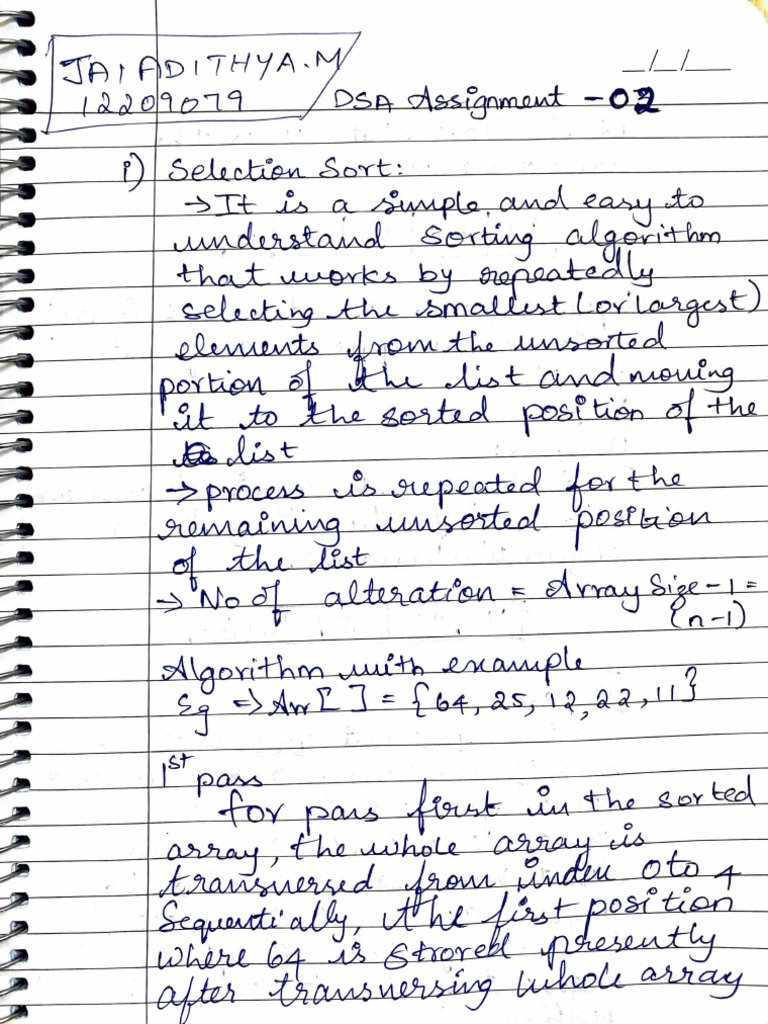 JAI ADITHYA.M
12209079
_/_/__
DSA Assignment - 02
i) Selection Sort:
→ It is a simple and easy to
understand sorting algorithm
that works by repeatedly
selecting the smallest (or largest)
elements from the unsorted
portion of the list and moving
it to the sorted position of the
list
→ process is repeated for the
remaining unsorted position
of the list
→ No of alteration = Array Size - 1 =
(n-1)
Algorithm with example
Eg ⇒ Arr[ ] = {64, 25, 12, 22, 11}
1st pass
for pass first in the sorted
array, the whole array is
transversed from index 0 to 4
Sequentially, the first position
where 64 is strored presently
after transversing whole array